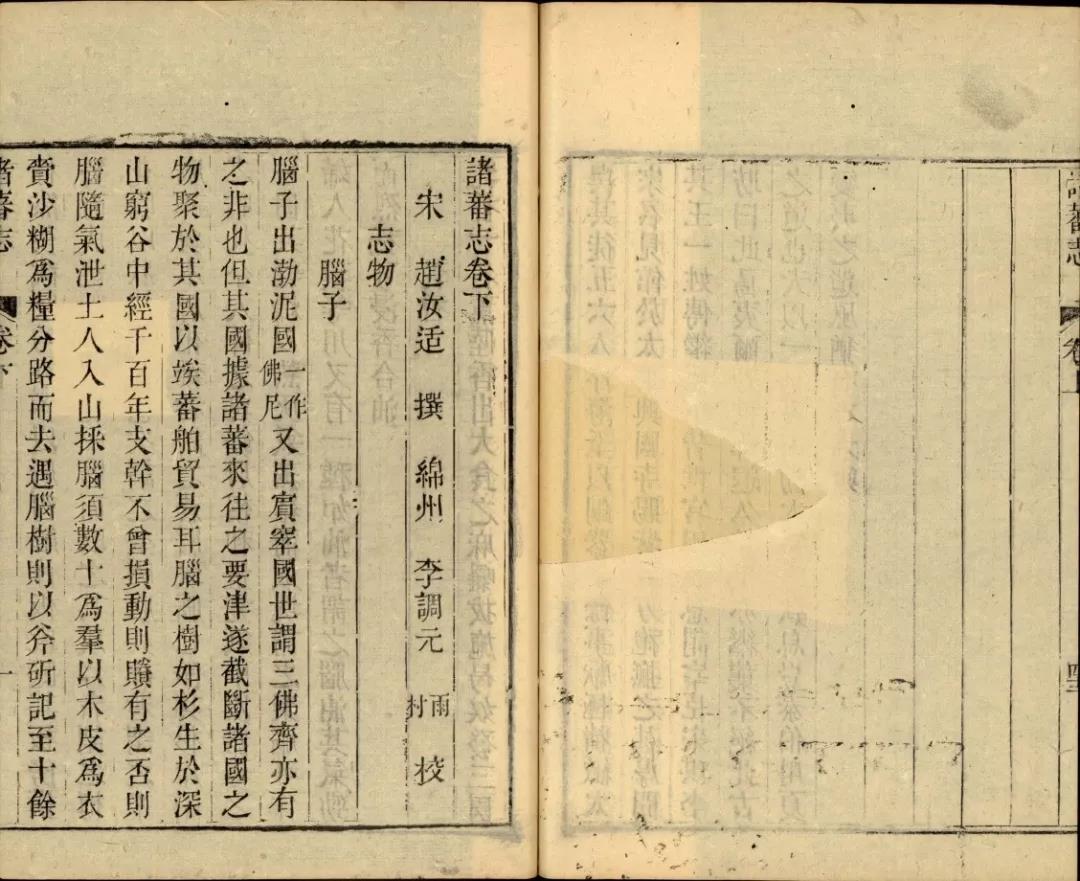 諸蕃志
卷上
諸蕃志卷下
宋 趙汝适 撰 綿州 李調元 雨村 校
志物
腦子
腦子出渤泥國一作佛尼又出賓窣國世謂三佛齊亦有
之非也但其國據諸蕃來往之要津遂截斷諸國之
物聚於其國以竢蕃舶貿易耳腦之樹如杉生於深
山窮谷中經千百年支幹不曾損動則賸有之否則
腦隨氣泄土人入山採腦須數十爲羣以木皮爲衣
賫沙糊爲糧分路而去遇腦樹則以斧斫記至十餘
諸蕃志 卷下 一